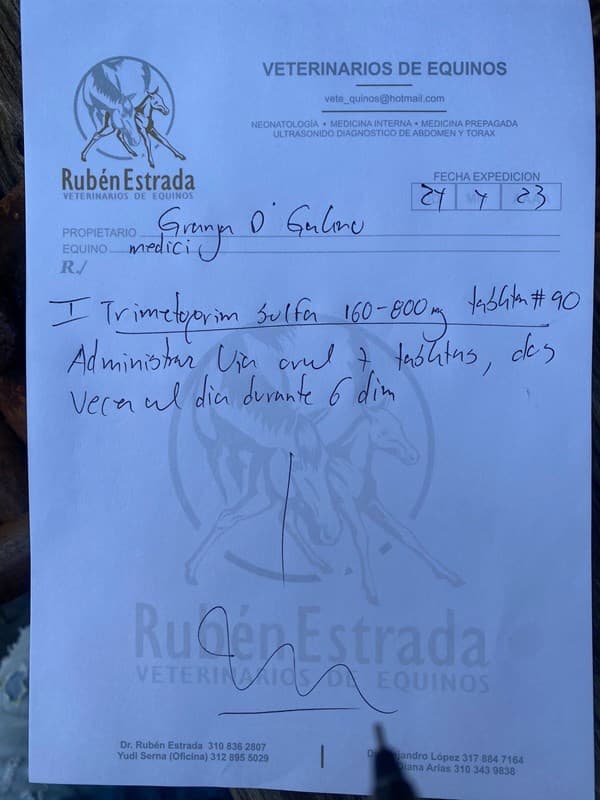 VETERINARIOS DE EQUINOS
veta_quinos@hotmail.com
NEONATOLOGÍA • MEDICINA INTERNA • MEDICINA PREPAGADA
ULTRASONIDO DIAGNOSTICO DE ABDOMEN Y TORAX
Rubén Estrada
VETERINARIOS DE EQUINOS
FECHA EXPEDICION
24 4 23
PROPIETARIO Granja D'
EQUINO medici
R./
I Trimetoprim Sulfa 160-800 mg tabletas # 90
Administrar Via oral 7 tabletas, dos
veces al dia durante 6 dias
Rubén Estrada
VETERINARIOS DE EQUINOS
Dr. Rubén Estrada 310 836 2807
Yudi Serna (Oficina) 312 895 5029
López 317 884 7164
Diana Arias 310 343 9838